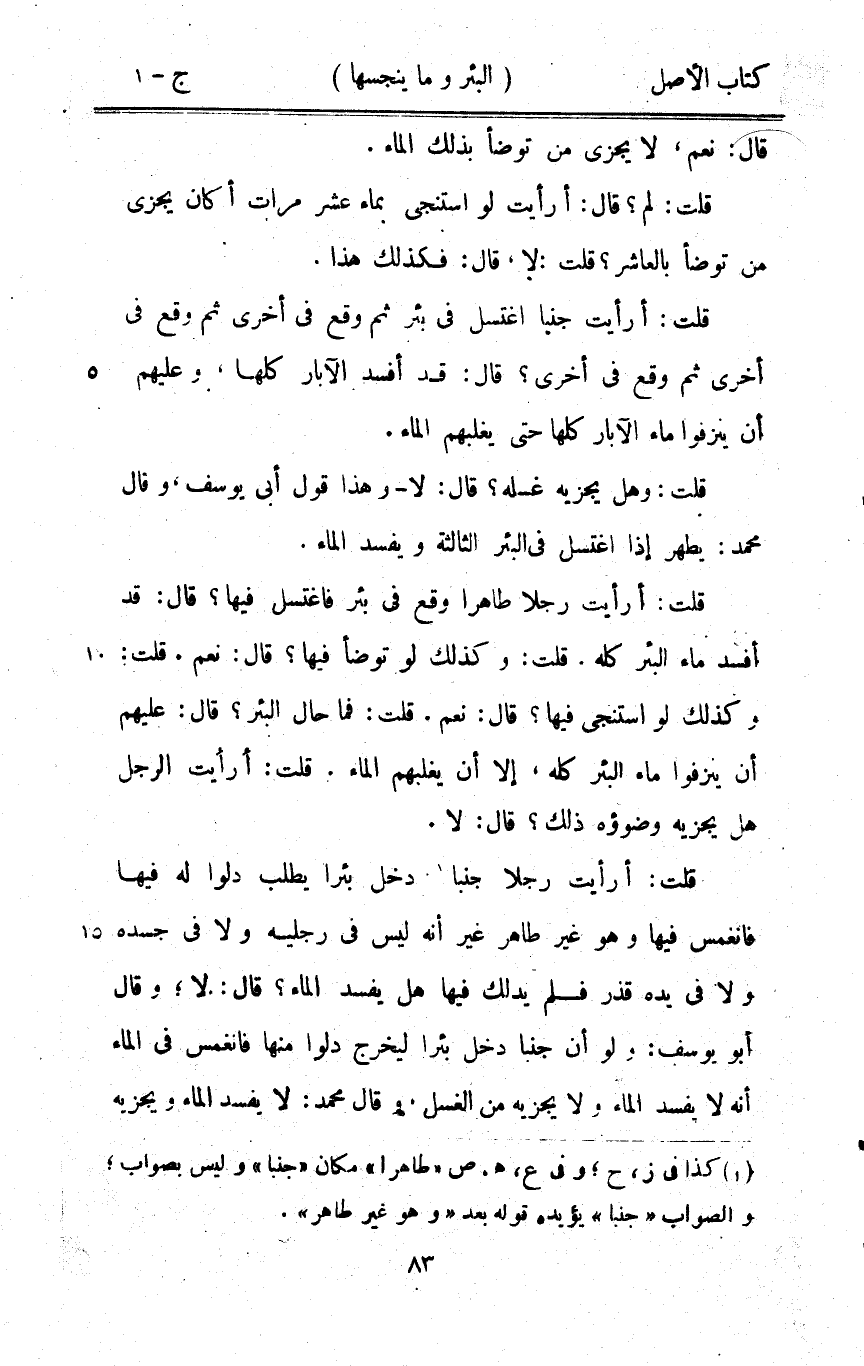 كتاب الأصل ( البئر و ما ينجسها ) ج - ١
قال: نعم، لا يجزى من توضأ بذلك الماء .
قلت: لم؟ قال: أ رأيت لو استنجى بماء عشر مرات أ كان يجزى
من توضأ بالعاشر؟ قلت: لا، قال: فكذلك هذا .
قلت: أ رأيت جنبا اغتسل فى بئر ثم وقع فى أخرى ثم وقع فى
أخرى ثم وقع فى أخرى؟ قال: قد أفسد الآبار كلها، و عليهم ٥
أن ينزفوا ماء الآبار كلها حتى يغلبهم الماء .
قلت: وهل يجزيه غسله؟ قال: لا - و هذا قول أبى يوسف، و قال
محمد: يطهر إذا اغتسل فى البئر الثالثة و يفسد الماء .
قلت: أ رأيت رجلا طاهرا وقع فى بئر فاغتسل فيها؟ قال: قد
أفسد ماء البئر كله . قلت: و كذلك لو توضأ فيها؟ قال: نعم . قلت: ١٠
و كذلك لو استنجى فيها؟ قال: نعم . قلت: فما حال البئر؟ قال: عليهم
أن ينزفوا ماء البئر كله، إلا أن يغلبهم الماء . قلت: أ رأيت الرجل
هل يجزيه وضوؤه ذلك؟ قال: لا .
قلت: أ رأيت رجلا جنبا ١ دخل بئرا يطلب دلوا له فيها
فانغمس فيها و هو غير طاهر غير أنه ليس فى رجليه و لا فى جسده ١٥
و لا فى يده قذر فلم يدلك فيها هل يفسد الماء؟ قال: لا؛ و قال
أبو يوسف: و لو أن جنبا دخل بئرا ليخرج دلوا منها فانغمس فى الماء
أنه لا يفسد الماء و لا يجزيه من الغسل . و قال محمد: لا يفسد الماء و يجزيه
(١) كذا فى ز، ح؛ و فى ع، ه، ص «طاهرا» مكان «جنبا» و ليس بصواب؛
و الصواب «جنبا» يؤيده قوله بعد «و هو غير طاهر» .
٨٣